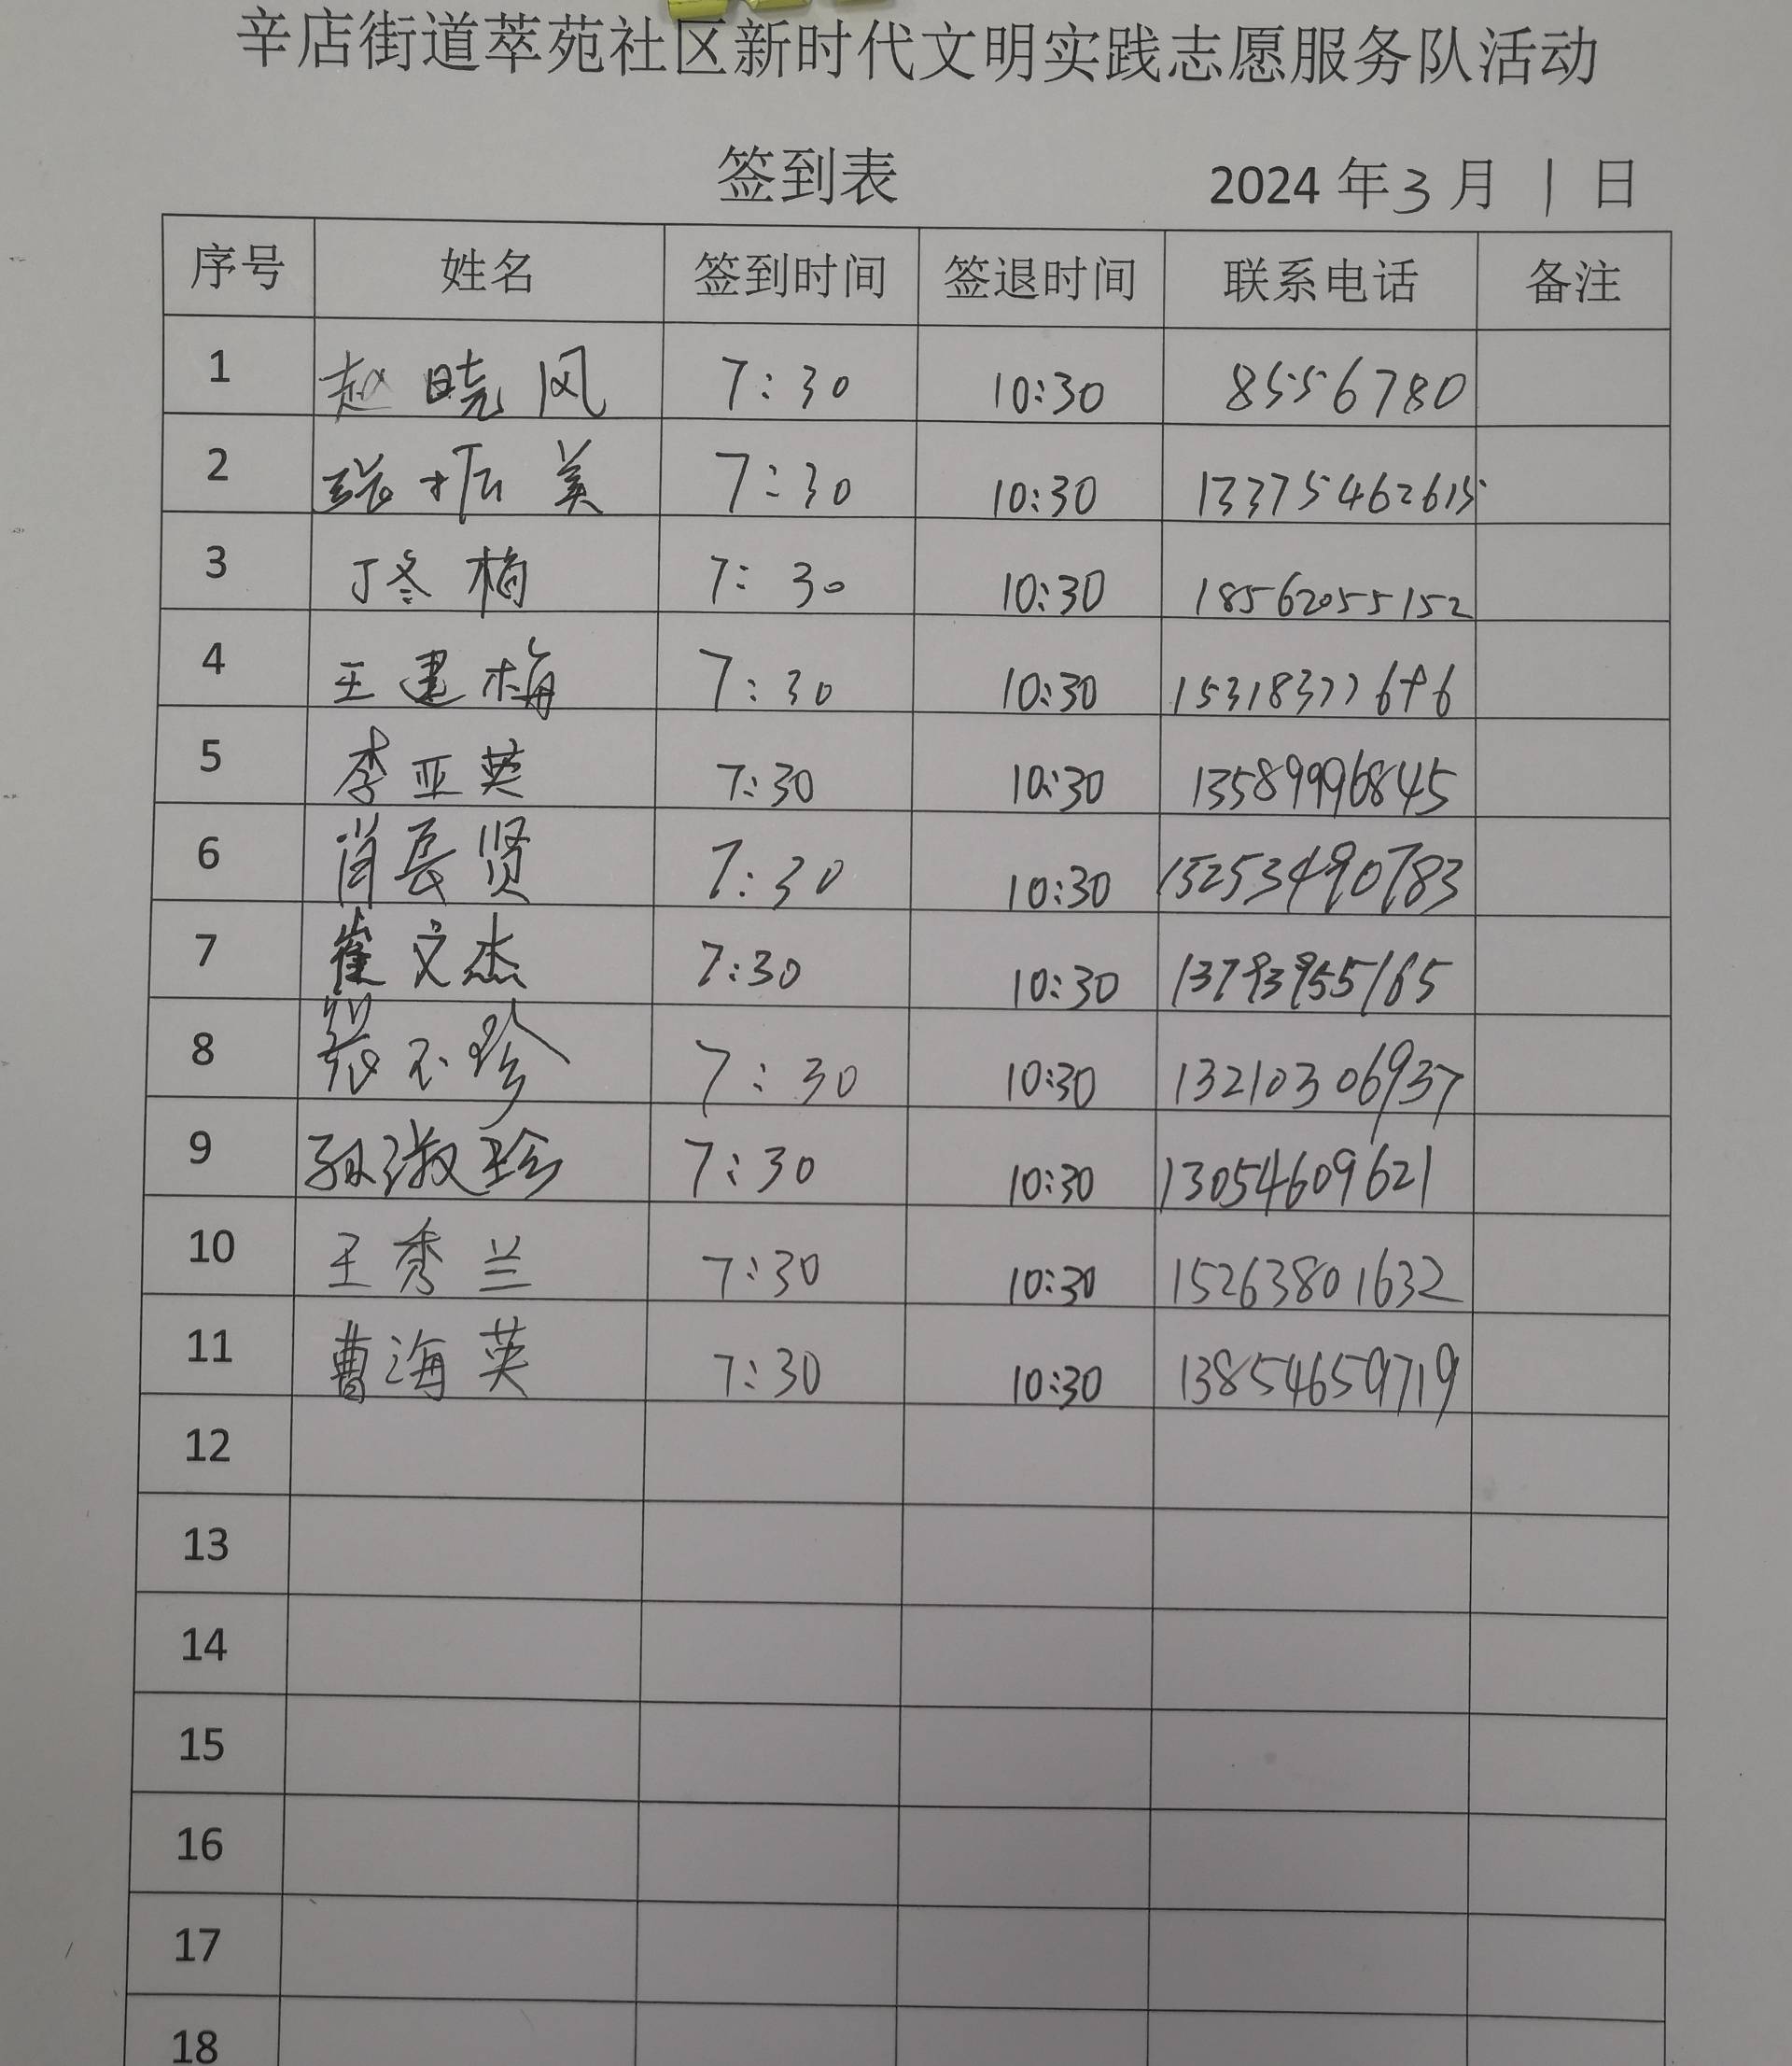 辛店街道萃苑社区新时代文明实践志愿服务队活动
签到表 2024 年 3 月 1 日
序号 姓名 签到时间 签退时间 联系电话 备注
1 赵晓风 7:30 10:30 8556780
2 美 7:30 10:30 13375462615
3 丁冬梅 7:30 10:30 18562055152
4 王建梅 7:30 10:30
5 李亚英 7:30 10:30 13589996845
6 肖长贤 7:30 10:30 15253490783
7 崔文杰 7:30 10:30 13793955165
8 张 珍 7:30 10:30 13210306937
9 孙淑珍 7:30 10:30 13054609621
10 王秀兰 7:30 10:30 15263801632
11 曹海英 7:30 10:30 13854659719
12
13
14
15
16
17
18